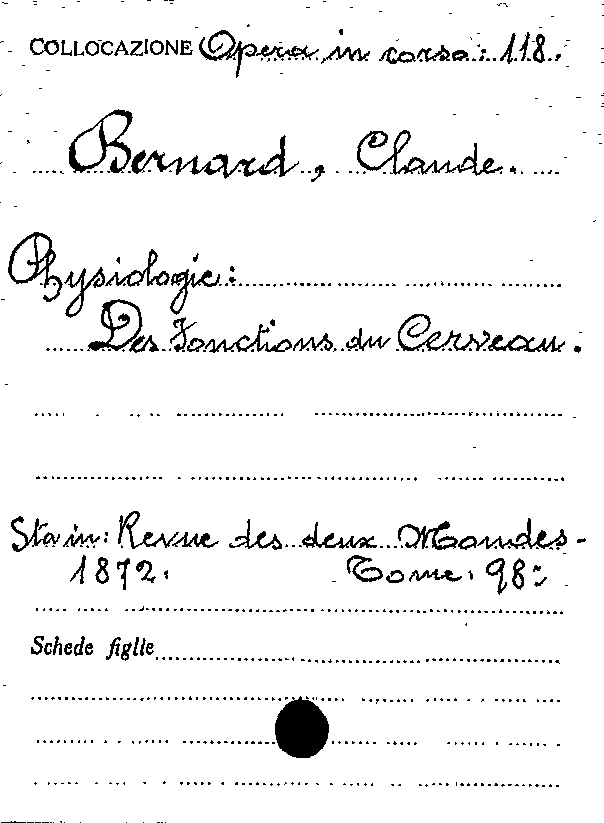 COLLOCAZIONE Opera in corso: 118.
Bernard, Claude.
Physiologie:
Des Fonctions du Cerveau.
Sta in: Revue des deux Mondes-
1872. Tome. 98:
Schede figlie